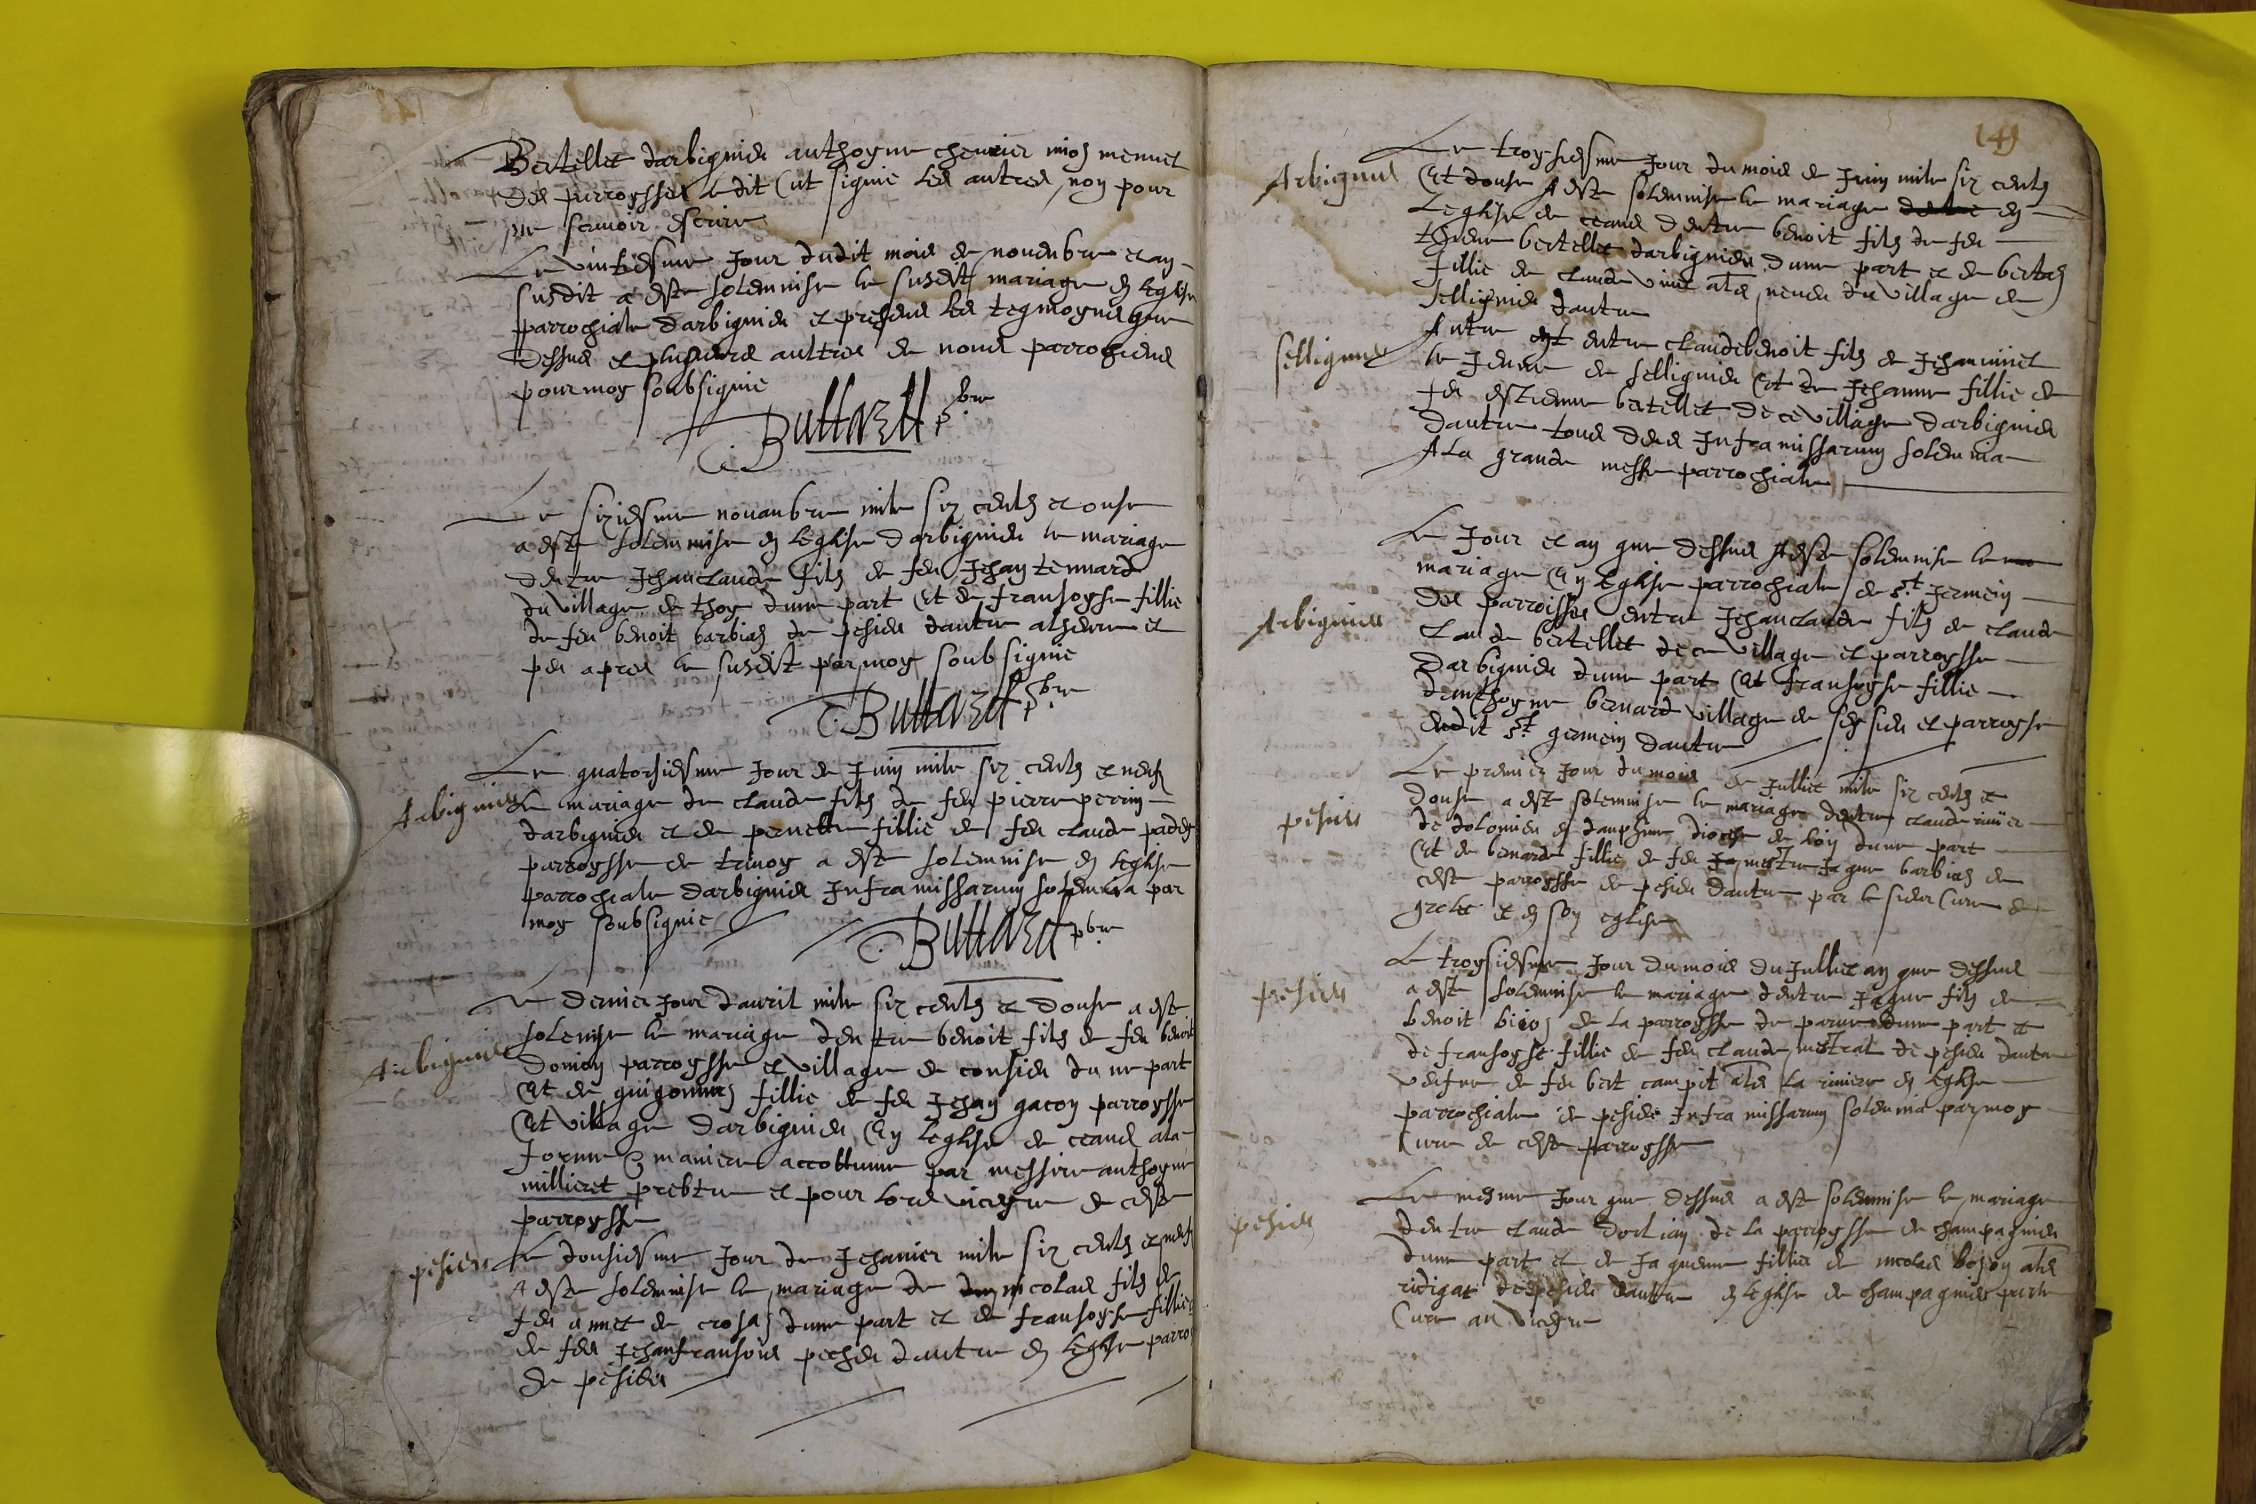 Bertellet darbignieu anthoyne chevrier mioz mennet
des parroysses ledit Cut signie les autres non pour
ne scavoir escrire
Le vintiesme Jour dudit mois de novenbre et an
susdit a este solemnise le susdit mariage en leglise
parrochiale darbignieu et presens les tesmoyns que
dessus et plusieurs aultres de nous parrochiens
pour moy soubsignie
Buttard pbre
Le siziesme novanbre mile six cents et onse
a este solemnise en leglise darbignieu le mariage
dentre Jehanclaude filz de feu Jehan tennard
du village de thoy dune part Et de fransoyse fillie
de feu benoit barbiaz de pesieu dautre a lheure et
peu apres le susdit par moy soubsignie
Buttard pbre
Le quatorsiesme Jour de Juin mile six cents et neuf
Arbignieu
le mariage de claude filz de feu pierre perrin
darbignieu et de pernette fillie de feu claude paddey
parroysse de trivoy a este solemnise en leglise
parrochiale darbignieu Infra missarum solemnia par
moy soubsignie
Buttard pbre
Le dernier Jour davril mile six cents et douse a este
Arbignieu
solenise le mariage dentre benoit filz de feu benoit
domon parroysse et village de consieu dune part
Et de guigonne fillie de feu Jehan gacon parroysse
Et village darbignieu En leglise de ceans a la
forme & maniere accottume par messire anthoyne
millieret prebtre et pour lors vicayre de ceste
parroysse
pesieu
Le dousiesme Jour de Jehanier mile six cents et neuf
A este solemnise le mariage de nicolas filz de
feu annet de crosaz dune part et de fransoyse fillie
de feu Jehanfransois pecheu dautre en leglise parro
de pesieu
149
Arbignieu
Le troysiesme Jour du mois de Juin mile six cents
Et douse A este solemnise le mariage en
Leglise de ceans dentre benoit filz de feu
bertellet darbignieu dune part et de bertaz
fillie de claude vinet als neveu du village de
sellignieu dautre
sellignieu
Autre est entre claudebenoit filz de Jehan vinet
le Jeune de sellignieu Et de Jehanne fillie de
feu estienne bertellet de ce village darbignieu
dautre tous deus Infra missarum solemnia
A La grande messe parrochiale
Le Jour et an que dessus A este solemnise le
mariage En leglise parrochiale de st Jermein
des parroisses entre Jehanclaude filz de claude
Arbignieu
Claude bertellet de ce village et parroysse
Darbignieu dune part Et fransoyse fillie
danthoyne bernard village de sessieu et parroysse
dudit st germein dautre
Le premier Jour du mois de Jullit mile six cents et
pesieu
douse a este solemnise le mariage dentre claude rivier
de dolomieu en dauphine diocese de lion dune part
Et de bernarde fillie de feu mestre Jaque barbiaz de
ceste parroysse de pesieu dautre par le sieur Cure de
grolee et en son eglise
Le troysiesme Jour du mois du Jullit an que dessus
pesieu
a este solemnise le mariage dentre Jaque filz de
benoit bicoz de la parroysse de parves dune part et
de fransoyse fillie de feu claude mestral de pesieu dautre
veufve de feu bert campit als La riviere en leglise
parrochiale de pesieu Infra missarum solemnia par moy
Cure de ceste parroysse
Le mesme Jour que dessus a este solemnise le mariage
pesieu
dentre claude dorlian de la parroysse de champagnieu
dune part et de Jaquemme fillie de nicolas boson als
ridigat de pesieu dautre en leglise de champagnieu par le
Cure au vicayre